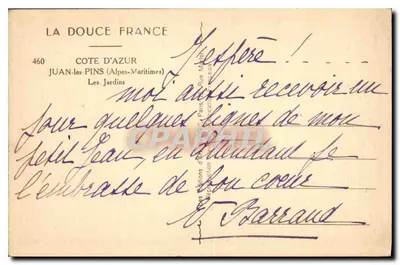 LA DOUCE FRANCE
460 COTE D'AZUR
JUAN-les-PINS (Alpes-Maritimes)
Les Jardins
J'espère !
moi aussi recevoir un
jour quelques lignes de mon
petit Jean, en attendant je
l'embrasse de bon coeur
V Barraud
CPARAMA